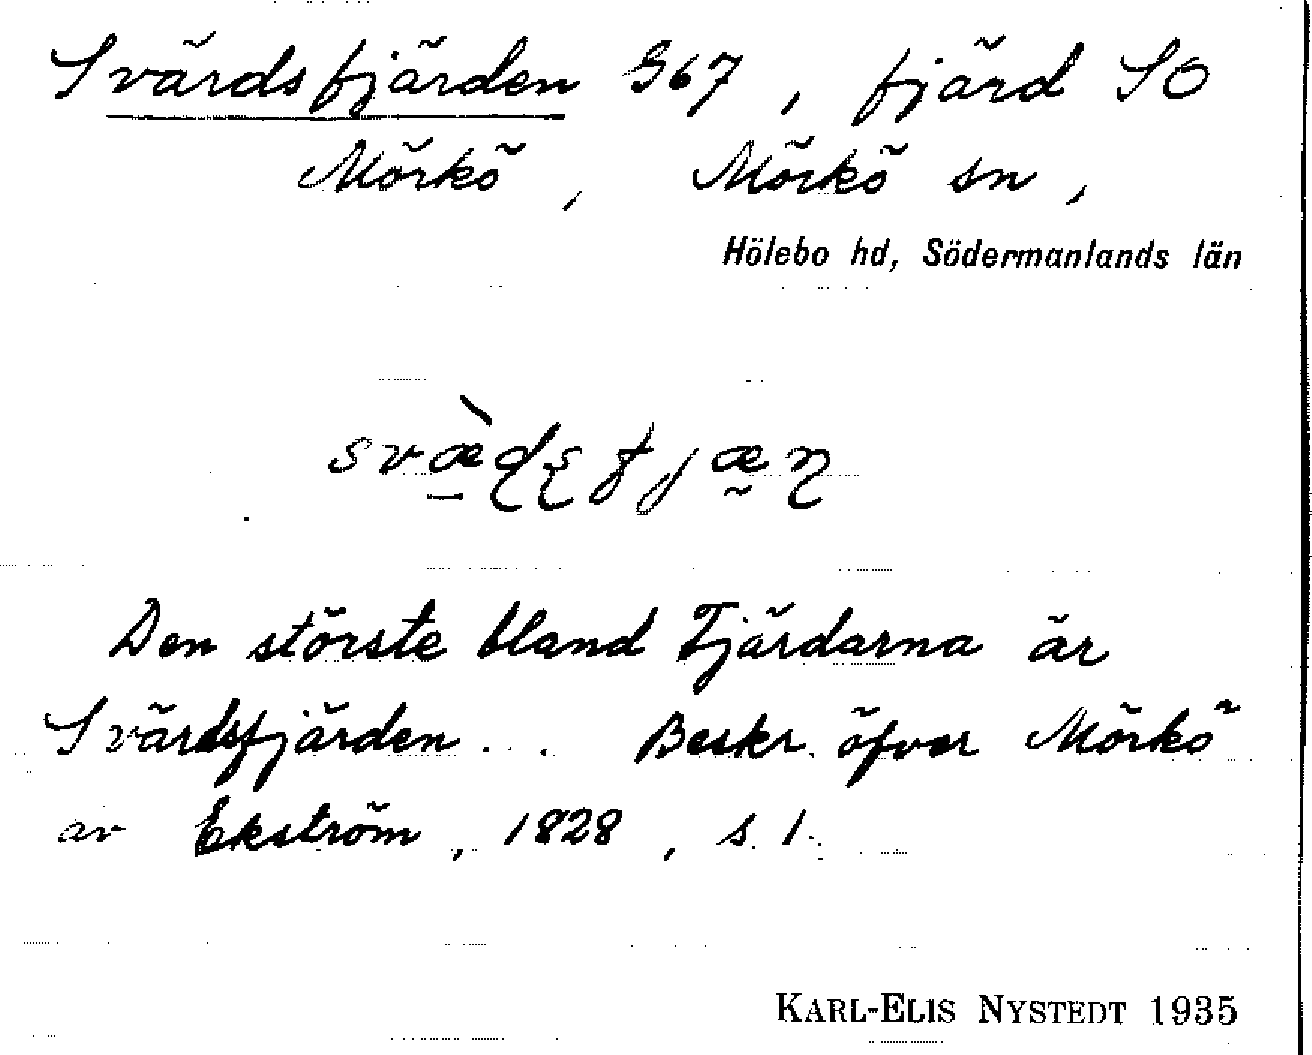 Svärdsfjärden 367, fjärd SO
Mörkö, Mörkö sn,
Hölebo hd, Södermanlands län
Den störste bland Fjärdarna är
Svärdsfjärden... Beskr. öfver Mörkö
av Ekström, 1828, s. 1.
KARL-ELIS NYSTEDT 1935